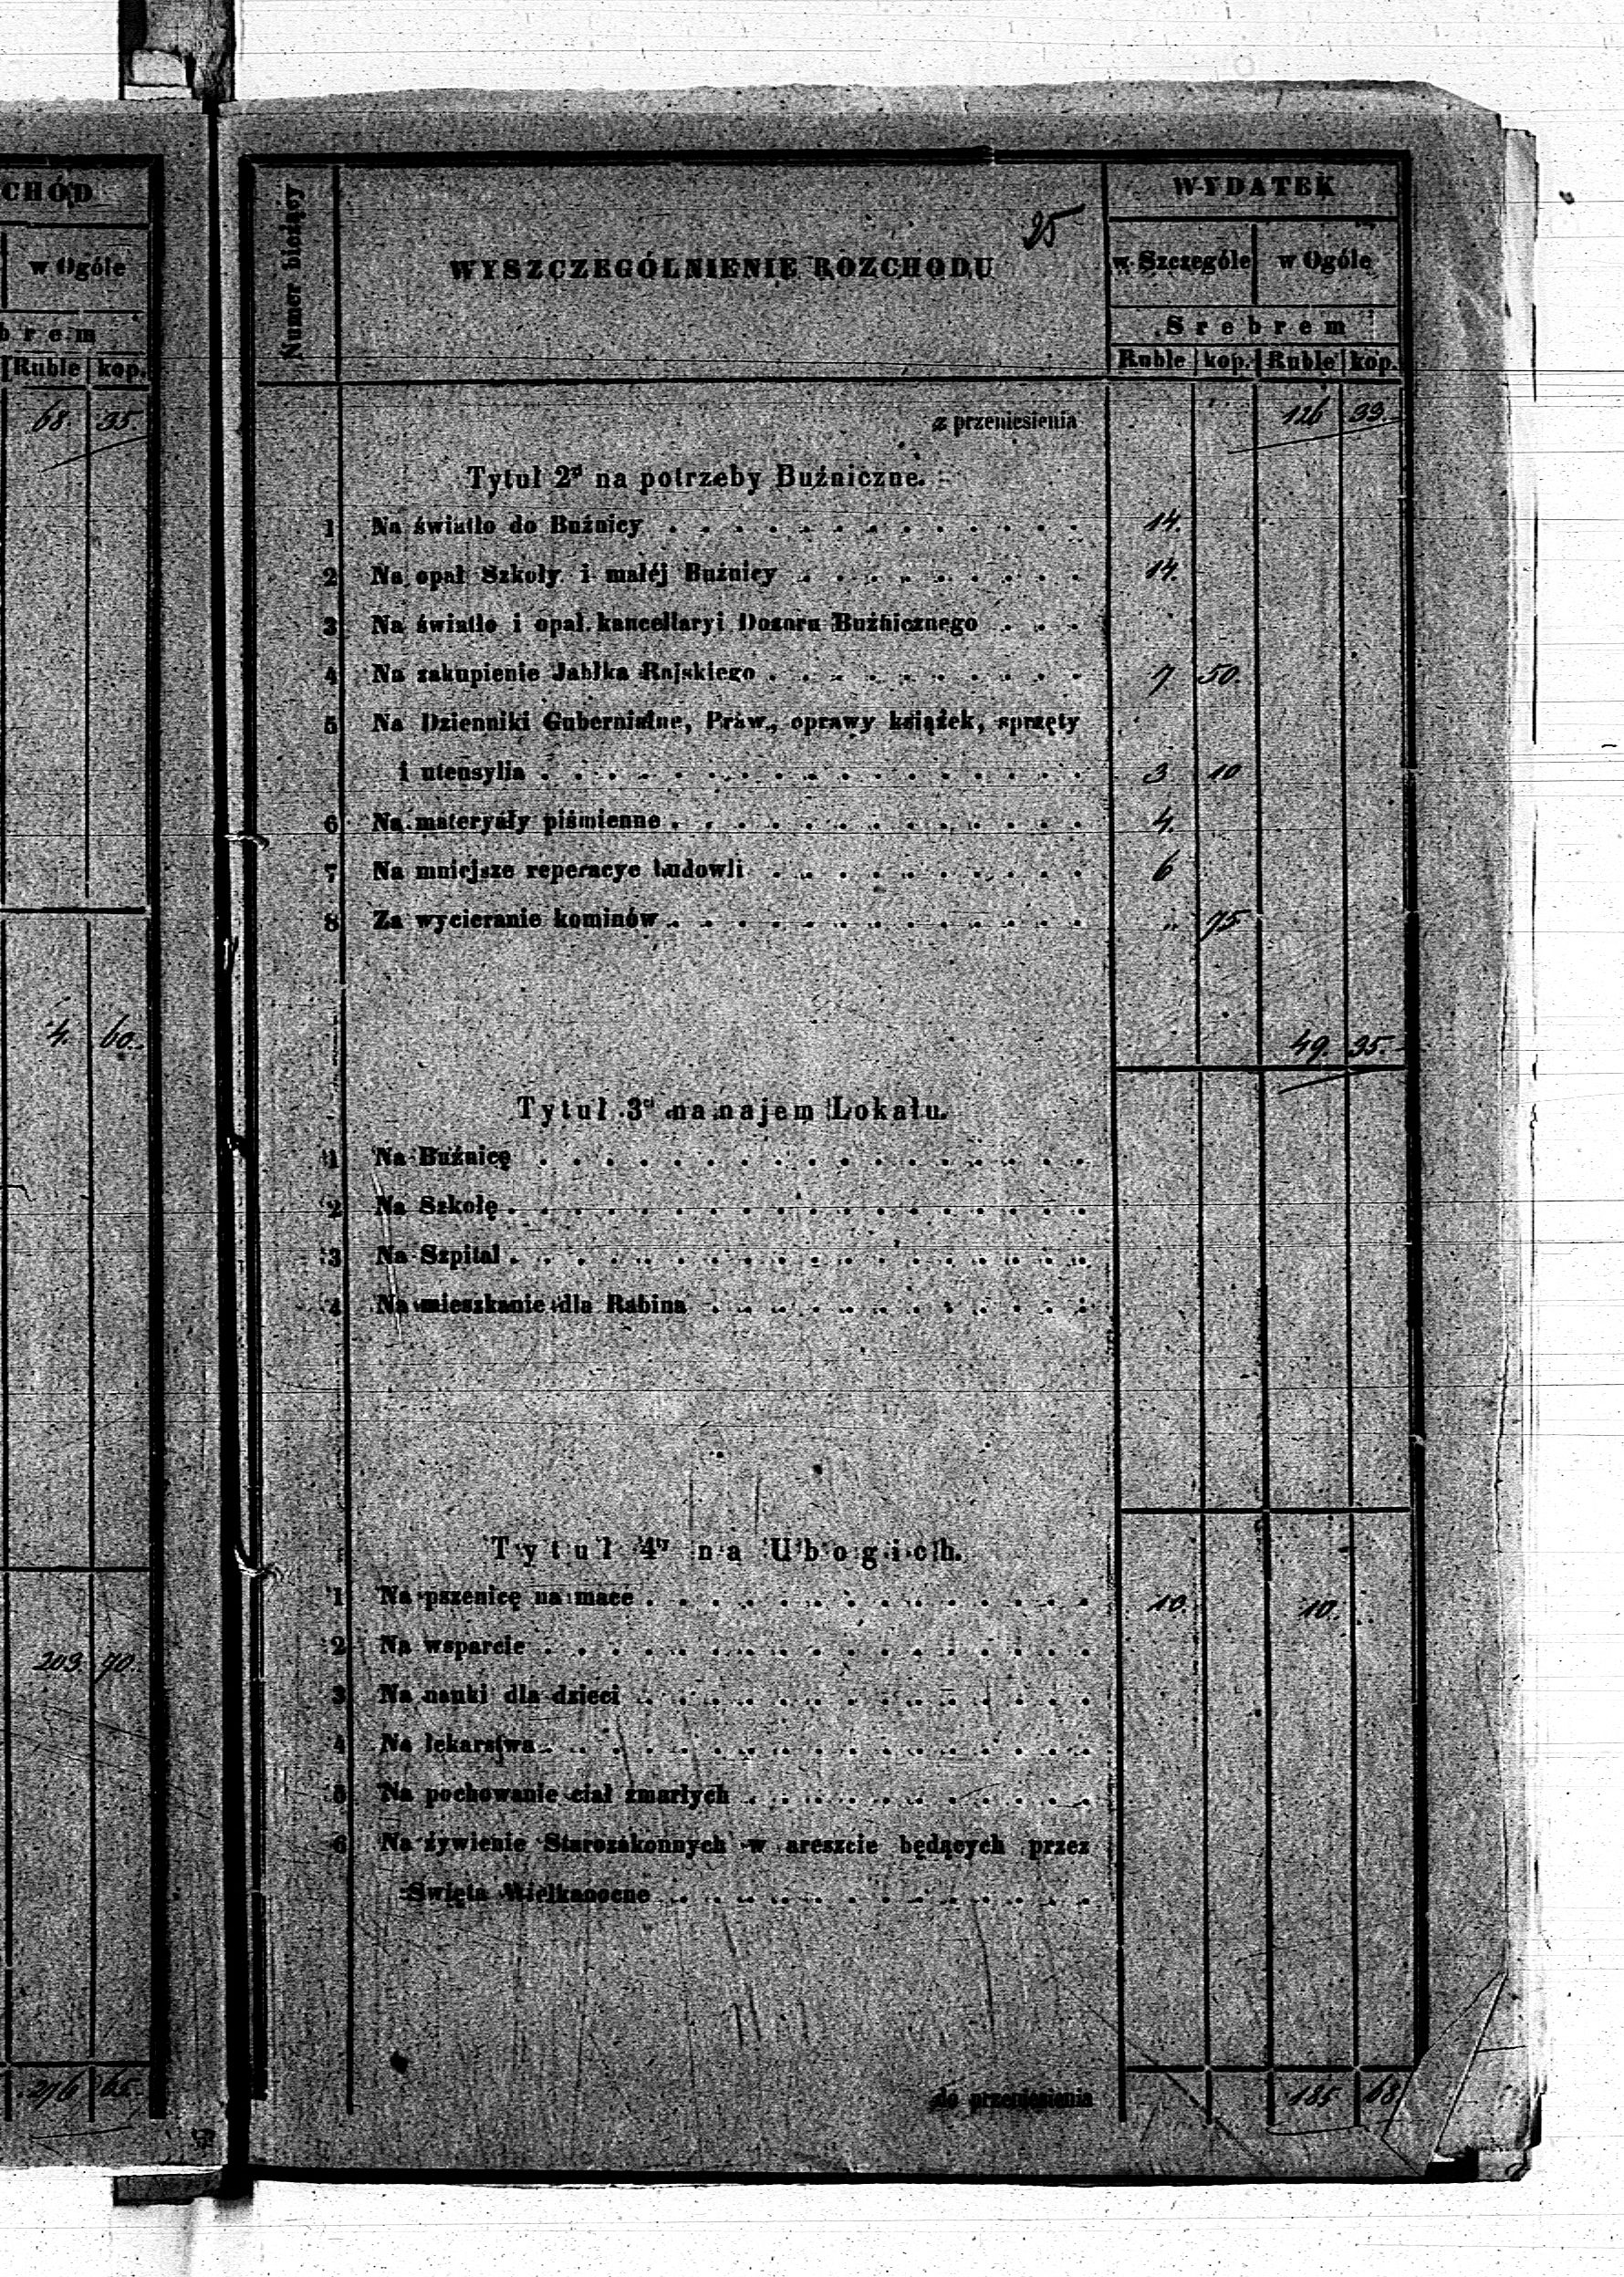 CHÓD
w Ogóle
b r e m
Ruble kop.
68. 35.
4. 60.
203. 70.
276 65.
25
Numer bieżący
WYSZCZEGÓLNIENIE ROZCHODU
WYDATEK
w Szczególe w Ogóle
Srebrem
Ruble kop. Ruble kop.
z przeniesienia 126 33.
Tytuł 2gi na potrzeby Buźniczne.
1 Na światło do Buźnicy 14.
2 Na opał Szkoły i małéj Buźnicy 14.
3 Na światło i opał kancellaryi Dozoru Buźnicznego
4 Na zakupienie Jabłka Rajskiego 7 50.
5 Na Dzienniki Gubernialne, Praw., oprawy książek, sprzęty
i utensylia 3 10
6 Na materyały piśmienne 4.
7 Na mniejsze reperacye budowli 6
8 Za wycieranie kominów „ 75
49. 35.
Tytuł 3ci na najem Lokalu.
1 Na Buźnicę
2 Na Szkołę
3 Na Szpital
4 Na mieszkanie dla Rabina
Tytuł 4ty na Ubogich.
1 Na pszenicę na mace 10. 10.
2 Na wsparcie
3 Na nauki dla dzieci
4 Na lekarstwa
5 Na pochowanie ciał zmarłych
6 Na żywienie Starozakonnych w areszcie będących przez
Święta Wielkanocne
do przeniesienia 185 68